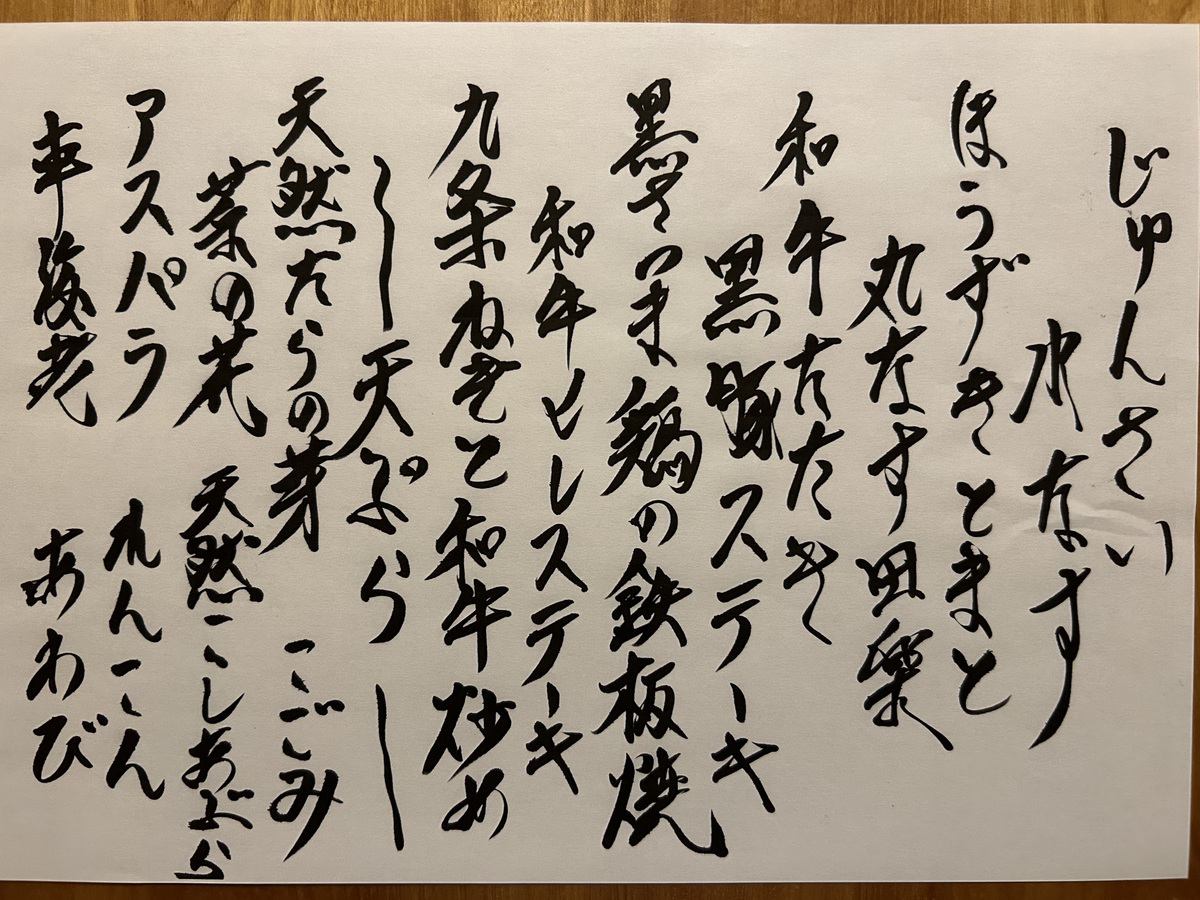 じゅんさい
水なす
ほうずきとまと
丸なす田楽
和牛たたき
黒豚ステーキ
黒さつま鶏の鉄板焼
和牛ヒレステーキ
九条ねぎと和牛炒め
〜天ぷら〜
天然たらの芽 こごみ
菜の花 天然こしあぶら
アスパラ れんこん
車海老 あわび